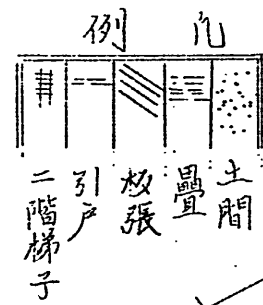 凡例
土間
疊
板張
引戸
二階梯子